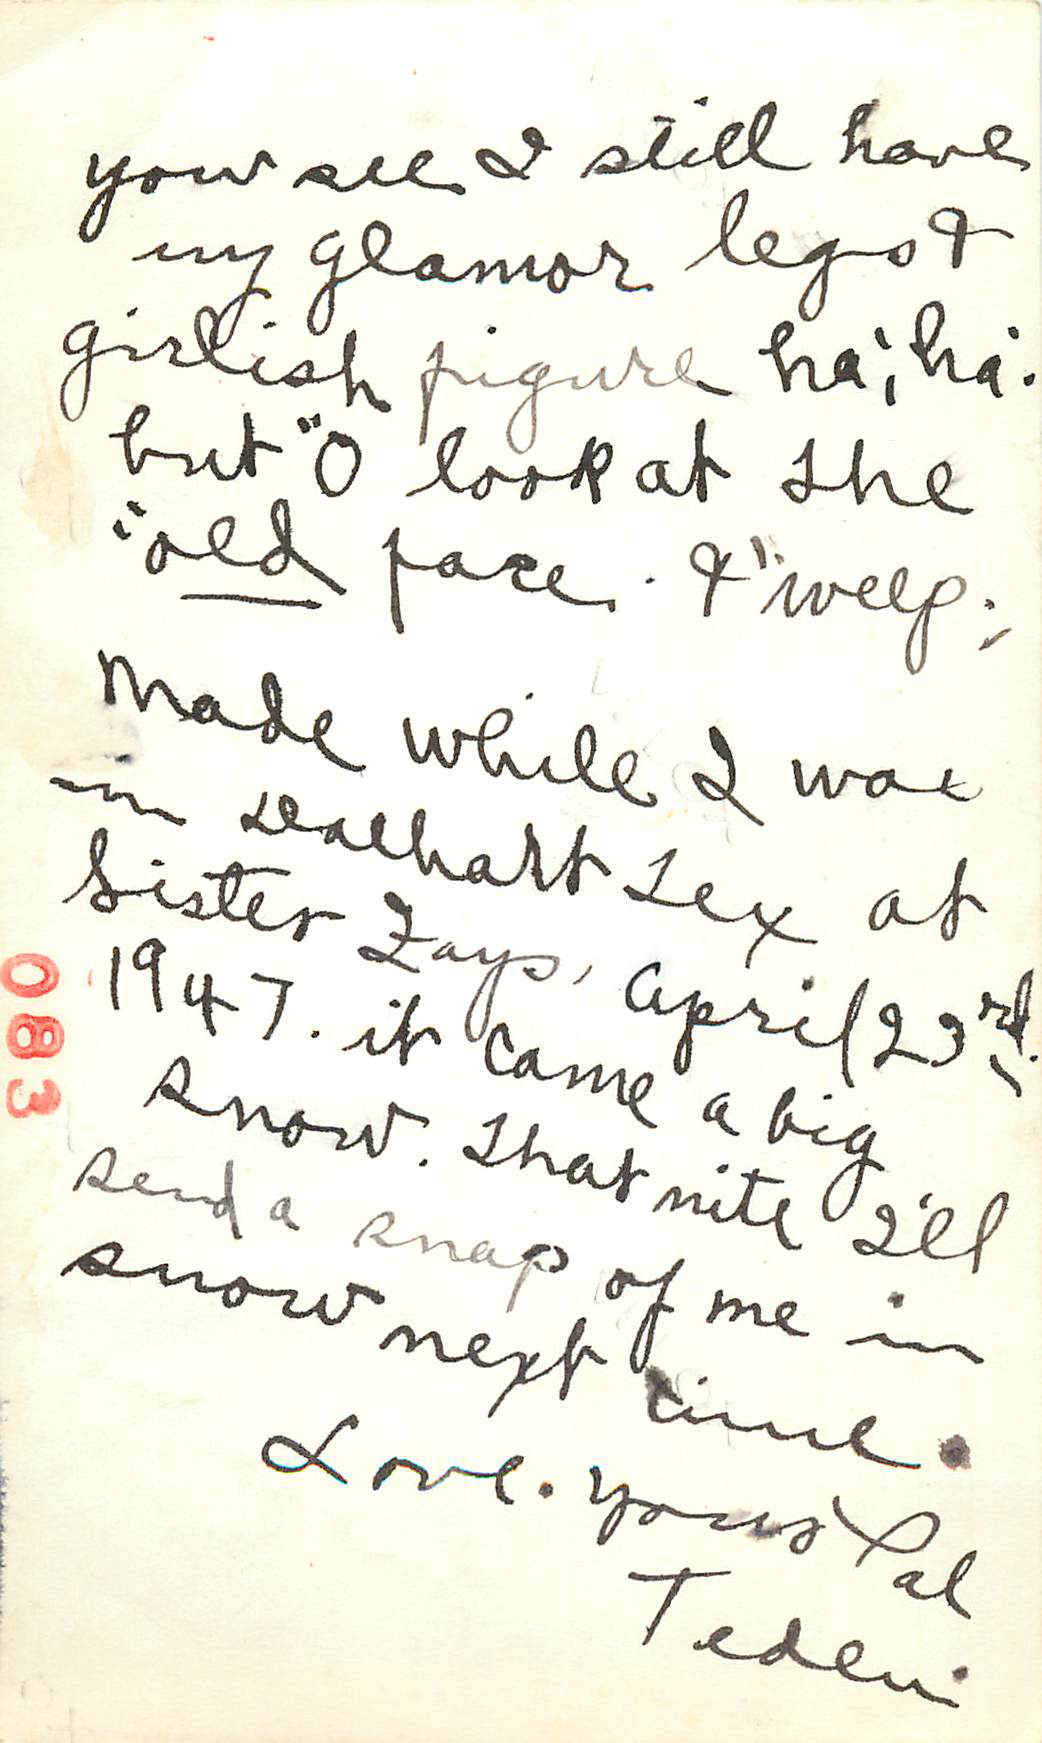 you see I still have
my glamor legs &
girlish figure ha', ha'.
but "O look at the
"old face. & "weep.
Made while I was
in Dealhart Tex at
Sister Zays, April 23rd.
1947. it came a big
snow. that nite I'll
send a snap of me in
snow next time.
Love. Your Pal
083